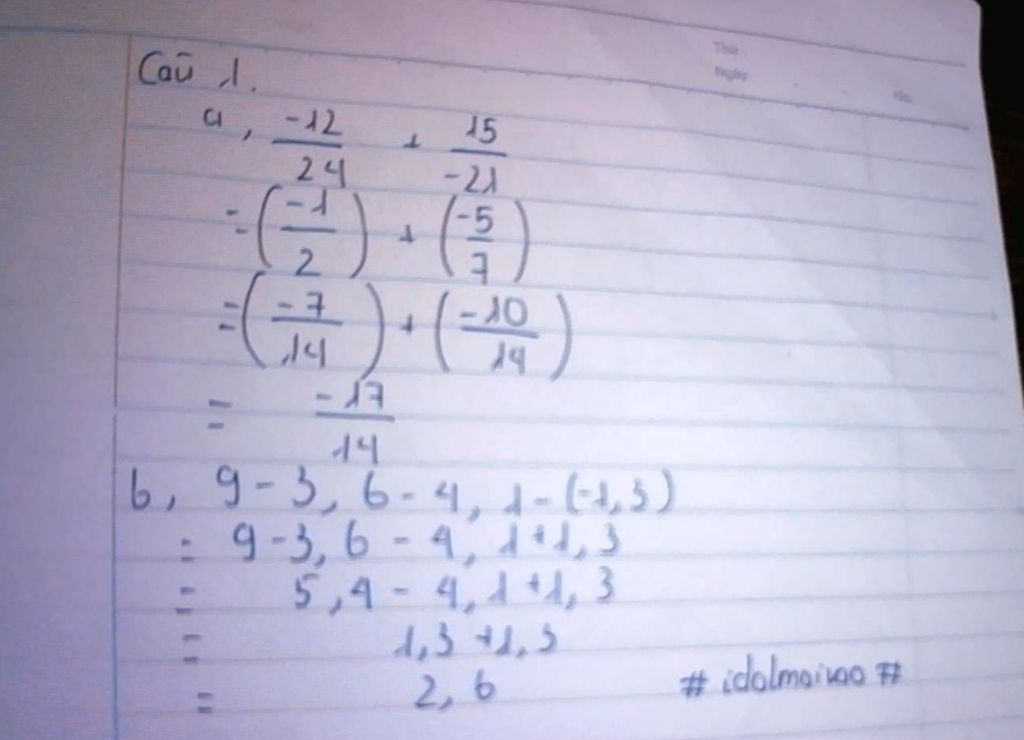 Thứ
Ngày
Câu 1.
a, -12/24 + 15/-21
= (-1/2) + (-5/7)
= (-7/14) + (-10/14)
= -17/14
b, 9 - 3,6 - 4,1 - (-1,3)
= 9 - 3,6 - 4,1 + 1,3
= 5,4 - 4,1 + 1,3
= 1,3 + 1,3
= 2,6
# idolmaivao #